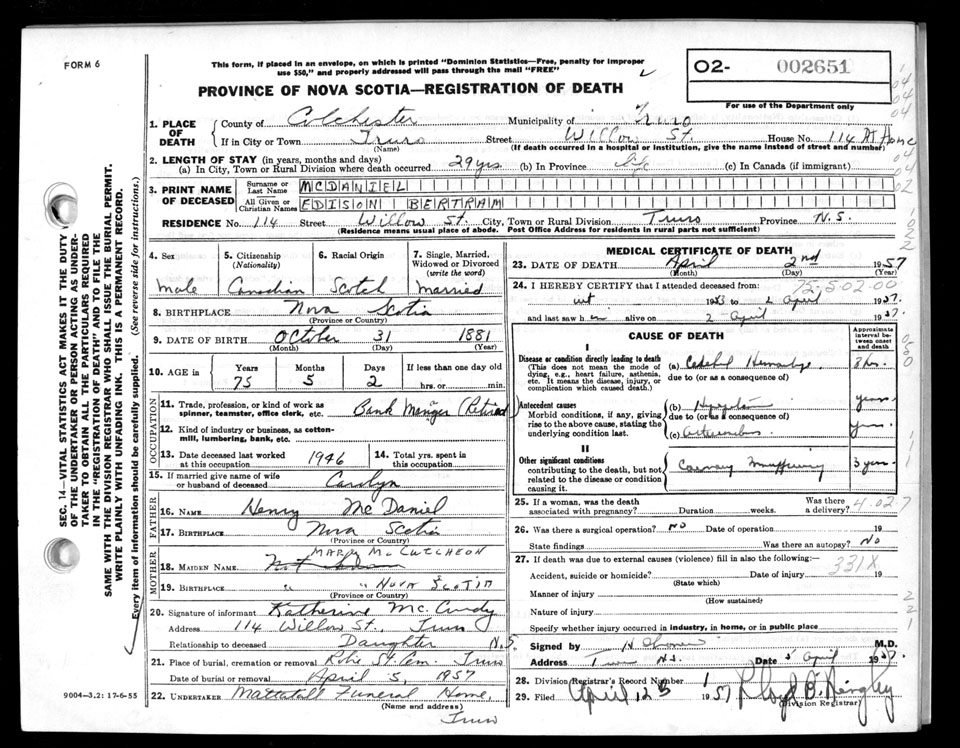 FORM 6
This form, if placed in an envelope, on which is printed "Dominion Statistics—Free, penalty for improper
use $50," and properly addressed will pass through the mail "FREE"
PROVINCE OF NOVA SCOTIA—REGISTRATION OF DEATH
O2- 002651
For use of the Department only
1. PLACE OF DEATH
County of Colchester Municipality of Truro
If in City or Town Truro Street Willow St. House No. 114 At Home
(Name) (If death occurred in a hospital or institution, give the name instead of street and number)
2. LENGTH OF STAY (in years, months and days)
(a) In City, Town or Rural Division where death occurred 29 yrs (b) In Province life (c) In Canada (if immigrant)
3. PRINT NAME OF DECEASED
Surname or Last Name MCDANIEL
All Given or Christian Names EDISON BERTRAM
RESIDENCE No. 114 Street Willow St. City, Town or Rural Division Truro Province N.S.
(Residence means usual place of abode. Post Office Address for residents in rural parts not sufficient)
4. Sex
male
5. Citizenship (Nationality)
Canadian
6. Racial Origin
Scotch
7. Single, Married, Widowed or Divorced (write the word)
Married
8. BIRTHPLACE Nova Scotia
(Province or Country)
9. DATE OF BIRTH October 31 1881
(Month) (Day) (Year)
10. AGE in Years Months Days If less than one day old
75 5 2 hrs. or min.
OCCUPATION
11. Trade, profession, or kind of work as
spinner, teamster, office clerk, etc. Bank Manager (Retired)
12. Kind of industry or business, as cotton-
mill, lumbering, bank, etc.
13. Date deceased last worked at this occupation 1946
14. Total yrs. spent in this occupation
15. If married give name of wife or husband of deceased Carolyn
FATHER
16. Name Henry McDaniel
17. Birthplace Nova Scotia
(Province or Country)
MOTHER
MARY McCUTCHEON
18. Maiden Name Not
19. Birthplace " " NOVA SCOTIA
(Province or Country)
20. Signature of informant Katherine McCurdy
Address 114 Willow St., Truro
Relationship to deceased Daughter N.S.
21. Place of burial, cremation or removal Robie St. Cem. Truro
Date of burial or removal April 5, 1957
22. UNDERTAKER Mattatall Funeral Home,
(Name and address)
Truro
MEDICAL CERTIFICATE OF DEATH
23. DATE OF DEATH April 2nd 1957
(Month) (Day) (Year)
24. I HEREBY CERTIFY that I attended deceased from:
75-5-02-00
1953 to 2 April 1957
and last saw him alive on 2 April 1957
CAUSE OF DEATH
Approximate interval between onset and death
I
Disease or condition directly leading to death
(This does not mean the mode of dying, e.g., heart failure, asthenia, etc. It means the disease, injury, or complication which caused death.)
(a) Hemorrhage
due to (or as a consequence of)
Antecedent causes
Morbid conditions, if any, giving rise to the above cause, stating the underlying condition last.
(b) years
due to (or as a consequence of)
(c) years
II
Other significant conditions
contributing to the death, but not related to the disease or condition causing it.
Coronary 3 years
25. If a woman, was the death associated with pregnancy? Duration weeks. Was there a delivery?
4.027
26. Was there a surgical operation? no Date of operation 19
State findings Was there an autopsy? No
27. If death was due to external causes (violence) fill in also the following:—
331X
Accident, suicide or homicide? Date of injury 19
(State which)
Manner of injury
(How sustained)
Nature of injury
Specify whether injury occurred in industry, in home, or in public place
Signed by M.D.
Address Truro N.S. Date April 1957
28. Division Registrar's Record Number
29. Filed April 12 1957 Lloyd B.
(Division Registrar)
SEC. 14—VITAL STATISTICS ACT MAKES IT THE DUTY
OF THE UNDERTAKER OR PERSON ACTING AS UNDER-
TAKER TO OBTAIN ALL THE PARTICULARS REQUIRED
IN THE "REGISTRATION OF DEATH" AND TO FILE THE
SAME WITH THE DIVISION REGISTRAR WHO SHALL ISSUE THE BURIAL PERMIT.
WRITE PLAINLY WITH UNFADING INK. THIS IS A PERMANENT RECORD.
Every item of information should be carefully supplied. (See reverse side for instructions.)
9004—3,2: 17-6-55